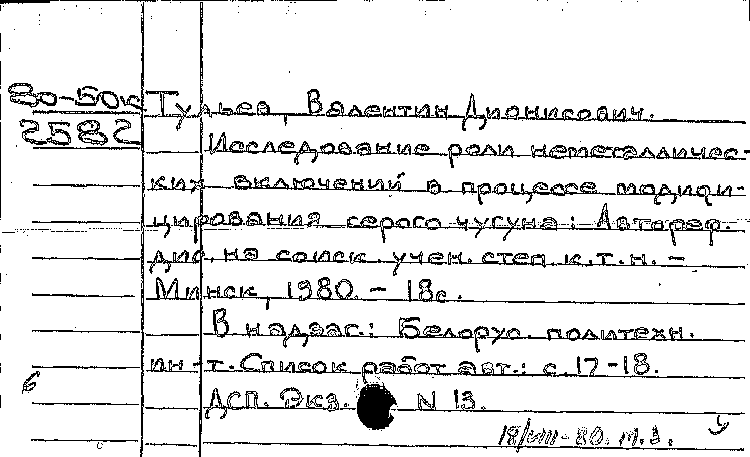 80-50к Тульев, Валентин Дионисович.
2582
Исследование роли неметалличес-
ких включений в процессе модифи-
цирования серого чугуна: Автореф.
дис. на соиск. учен. степ. к.т.н. –
Минск, 1980. – 18с.
В надзаг.: Белорус. политехн.
ин-т. Список работ авт.: с. 17-18.
ДСП. Экз. N 13.
18/VIII-80. М.З.